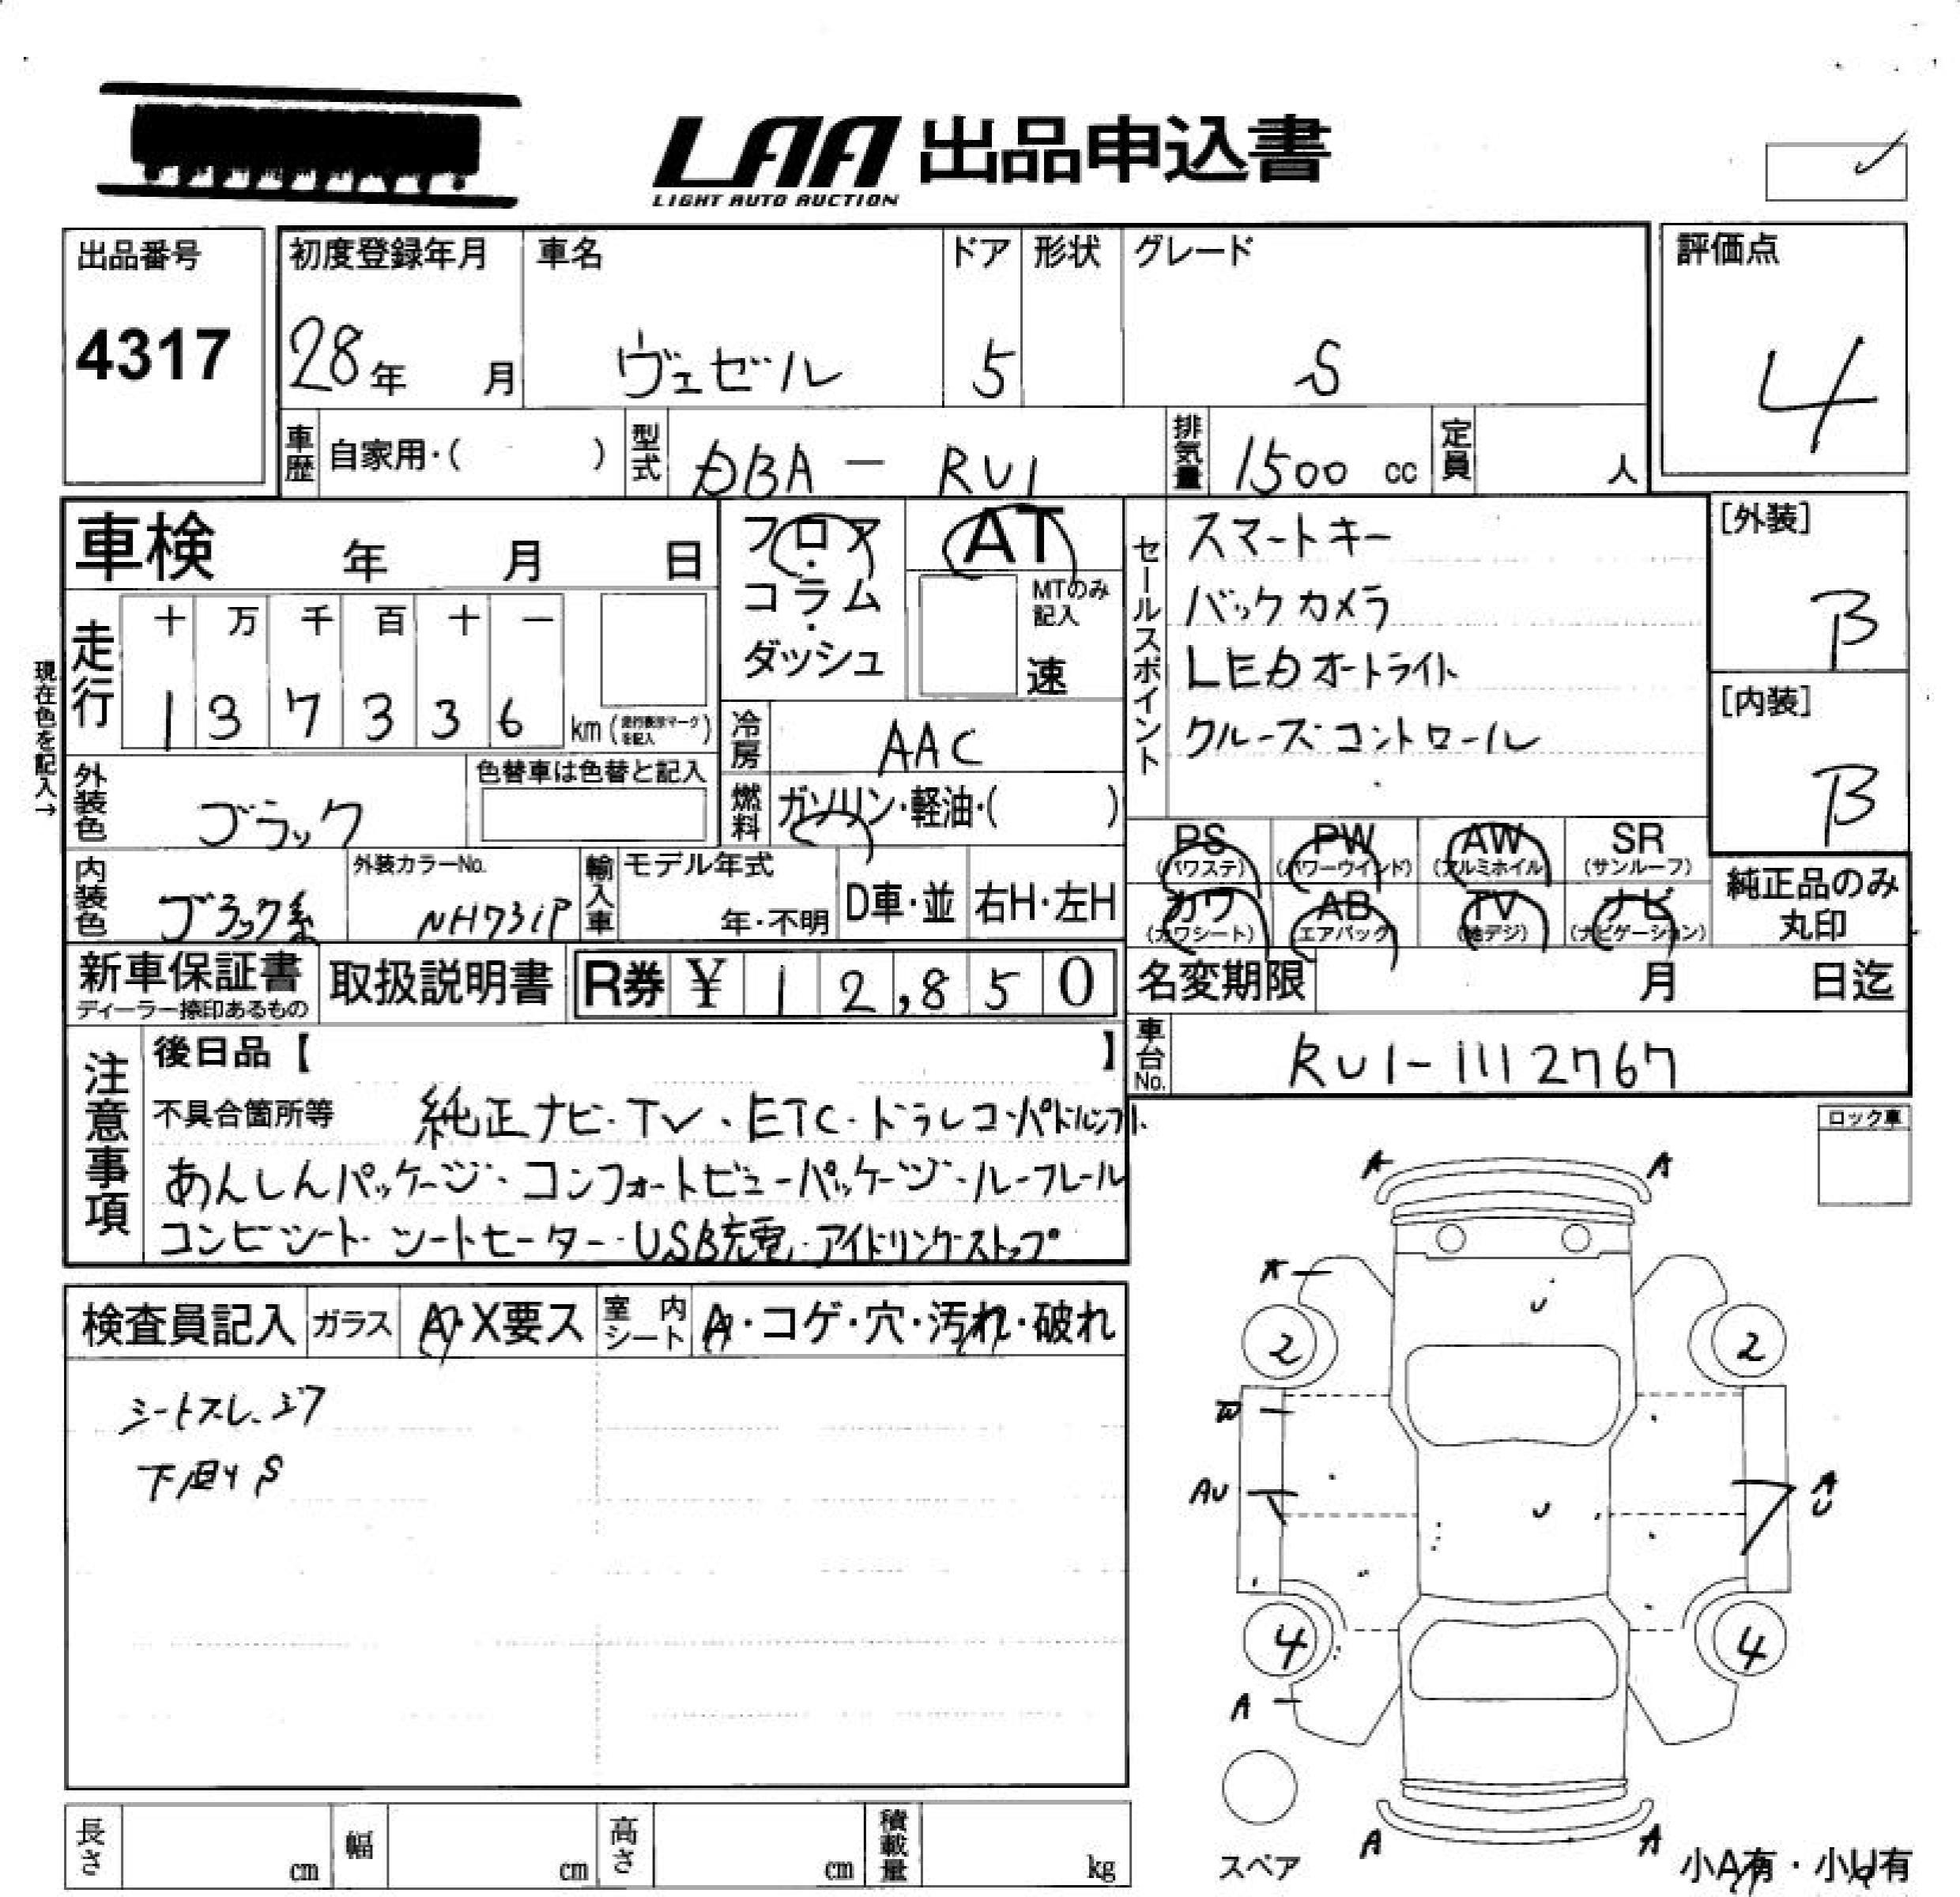 LAA 出品申込書
LIGHT AUTO AUCTION
出品番号
4317
初度登録年月
28年 月
車名
ヴェゼル
ドア
5
形状
グレード
S
評価点
4
車歴 自家用・( )
型式 DBA - RU1
排気量 1500 cc
定員 人
車検 年 月 日
フロア・コラム・ダッシュ
AT
MTのみ記入
速
セールスポイント
スマートキー
バックカメラ
LEDオートライト
クルーズコントロール
[外装]
B
[内装]
B
現在色を記入→
走行
十 万 千 百 十 一
1 3 7 3 3 6 km (走行表示マークを記入)
冷房 AAC
外装色 ブラック
色替車は色替と記入
燃料 ガソリン・軽油・( )
内装色 ブラック系
外装カラーNo. NH731P
輸入車
モデル年式
年・不明
D車・並
右H・左H
PS (パワステ)
PW (パワーウインド)
AW (アルミホイル)
SR (サンルーフ)
カワ (カワシート)
AB エアバック
TV (地デジ)
ナビ (ナビゲーション)
純正品のみ
丸印
新車保証書
ディーラー捺印あるもの
取扱説明書
R券 ¥ 1 2,8 5 0
名変期限 月 日迄
車台No. RU1-1112767
注意事項
後日品【 】
不具合箇所等 純正ナビ・TV・ETC・ドラレコ・パドルシフト・
あんしんパッケージ・コンフォートビューパッケージ・ルーフレール
コンビシート・シートヒーター・USB充電・アイドリングストップ
ロック車
検査員記入
ガラス A・X要ス
室内シート A・コゲ・穴・汚れ・破れ
シートスレ、シワ
下廻りS
A A
A
U
2 2
W
AU
U
A
U
4 4
A
A A
スペア
小A有・小U有
長さ cm
幅 cm
高さ cm
積載量 kg